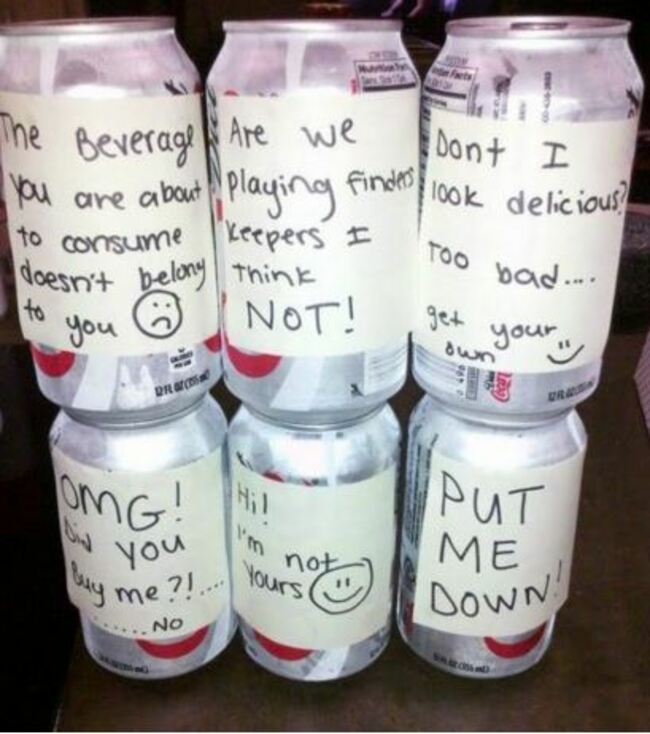 The Beverage
you are about
to consume
doesn't belong
to you
Are we
playing finders
keepers I
think
NOT!
Dont I
look delicious?
Too bad....
get your
own
OMG!
Did you
Buy me?!....
......NO
Hi!
I'm not
yours
PUT
ME
DOWN!